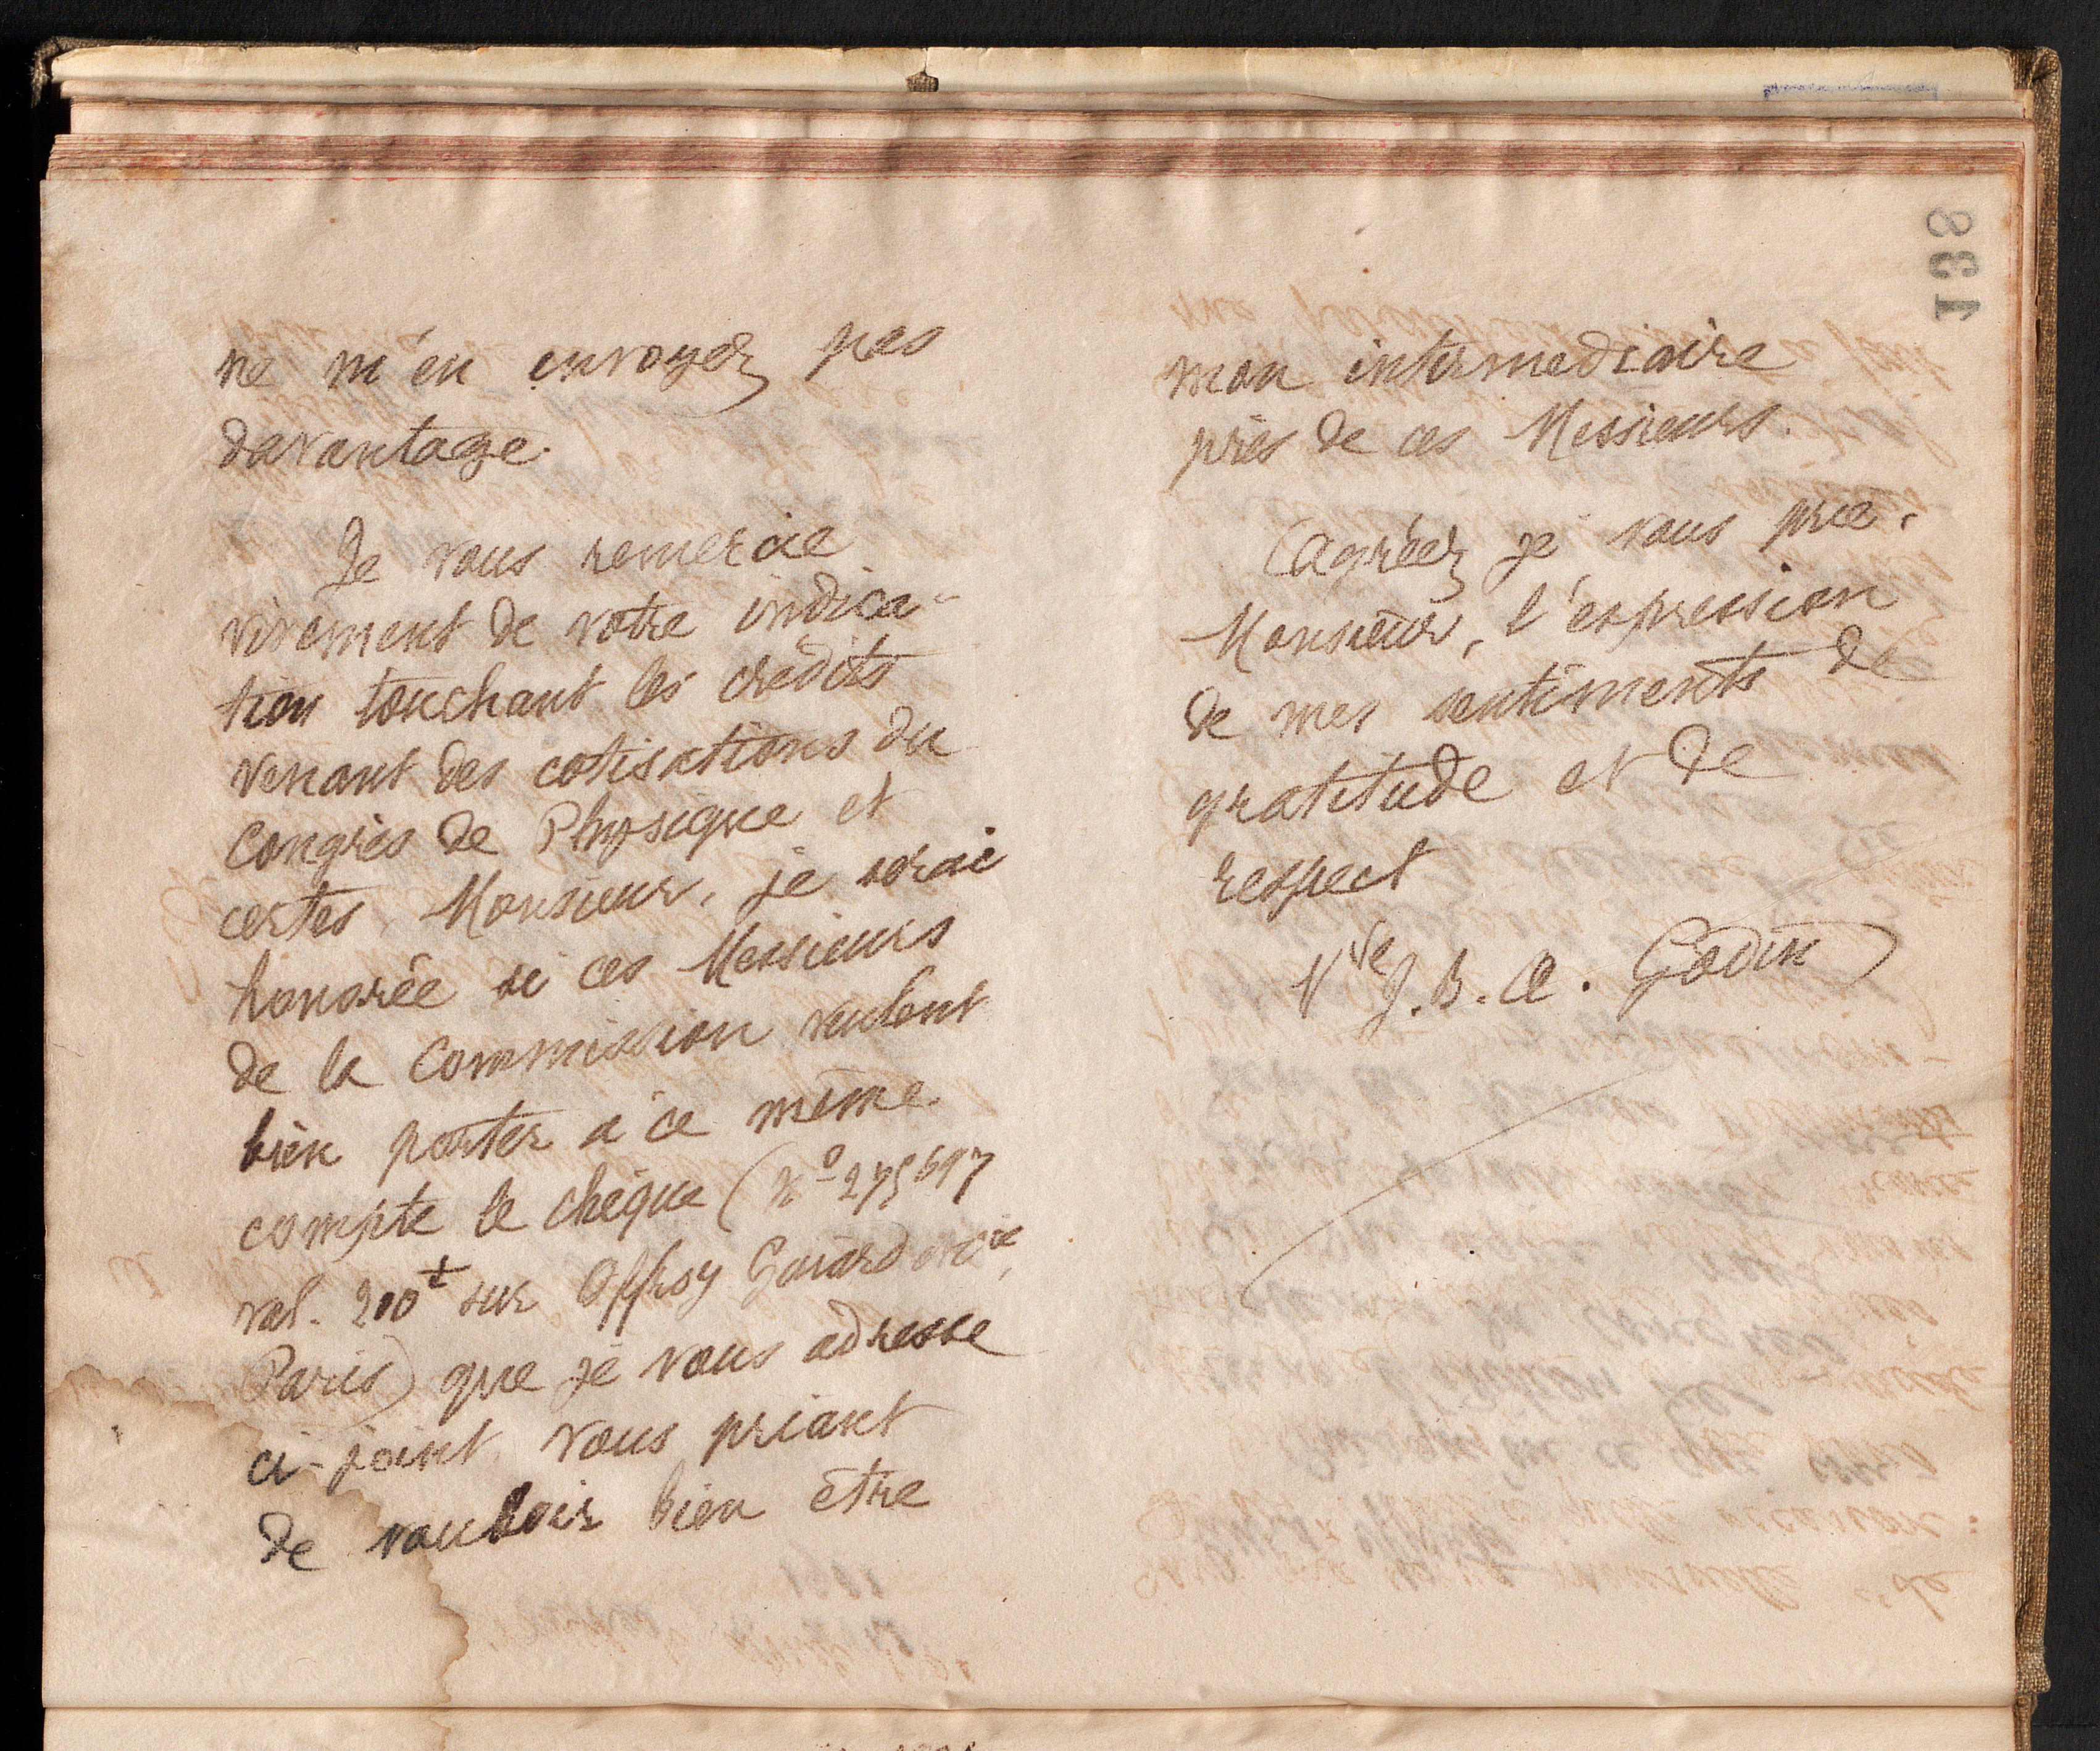 ne m'en envoyez pas
davantage.
Je vous remercie
vivement de votre indica-
tion touchant les crédits
venant des cotisations du
Congrès de Physique et
certes, Monsieur, je serai
honorée si ces Messieurs
de la Commission veulent
bien porter à ce même
compte le chèque (No 275697
val. 200f sur Offroy Guiard et Cie,
Paris) que je vous adresse
ci-joint, vous priant
de vouloir bien être
138
mon intermédiaire
près de ces Messieurs.
Agréez je vous prie,
Monsieur, l'expression
de mes sentiments de
gratitude et de
respect
Vve J. B. A. Godin